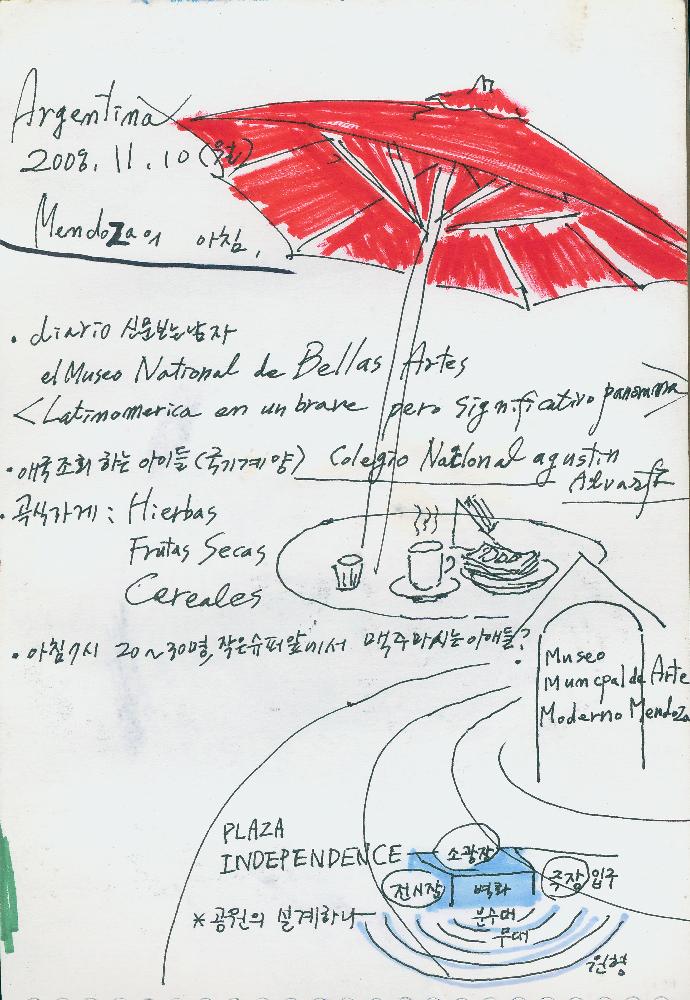 Argentina
2008. 11. 10 (월)
Mendoza의 아침.
• diario 신문보는남자
el Museo National de Bellas Artes
<Latinomerica en un brave pero significativo panorama>
• 애국조회 하는 아이들 (국기계양) Colegio National agustin
Alvarez
• 곡식가게 : Hierbas
Frutas Secas
Cereales
• 아침 7시 20~30명, 작은슈퍼앞에서 맥주마시는아애들?
Museo
Muncpal de Arte
Moderno Mendoza
PLAZA
INDEPENDENCE
소광장
전시장 벽화 주장 입구
* 공원의 설계하나
분수대
무대
원형